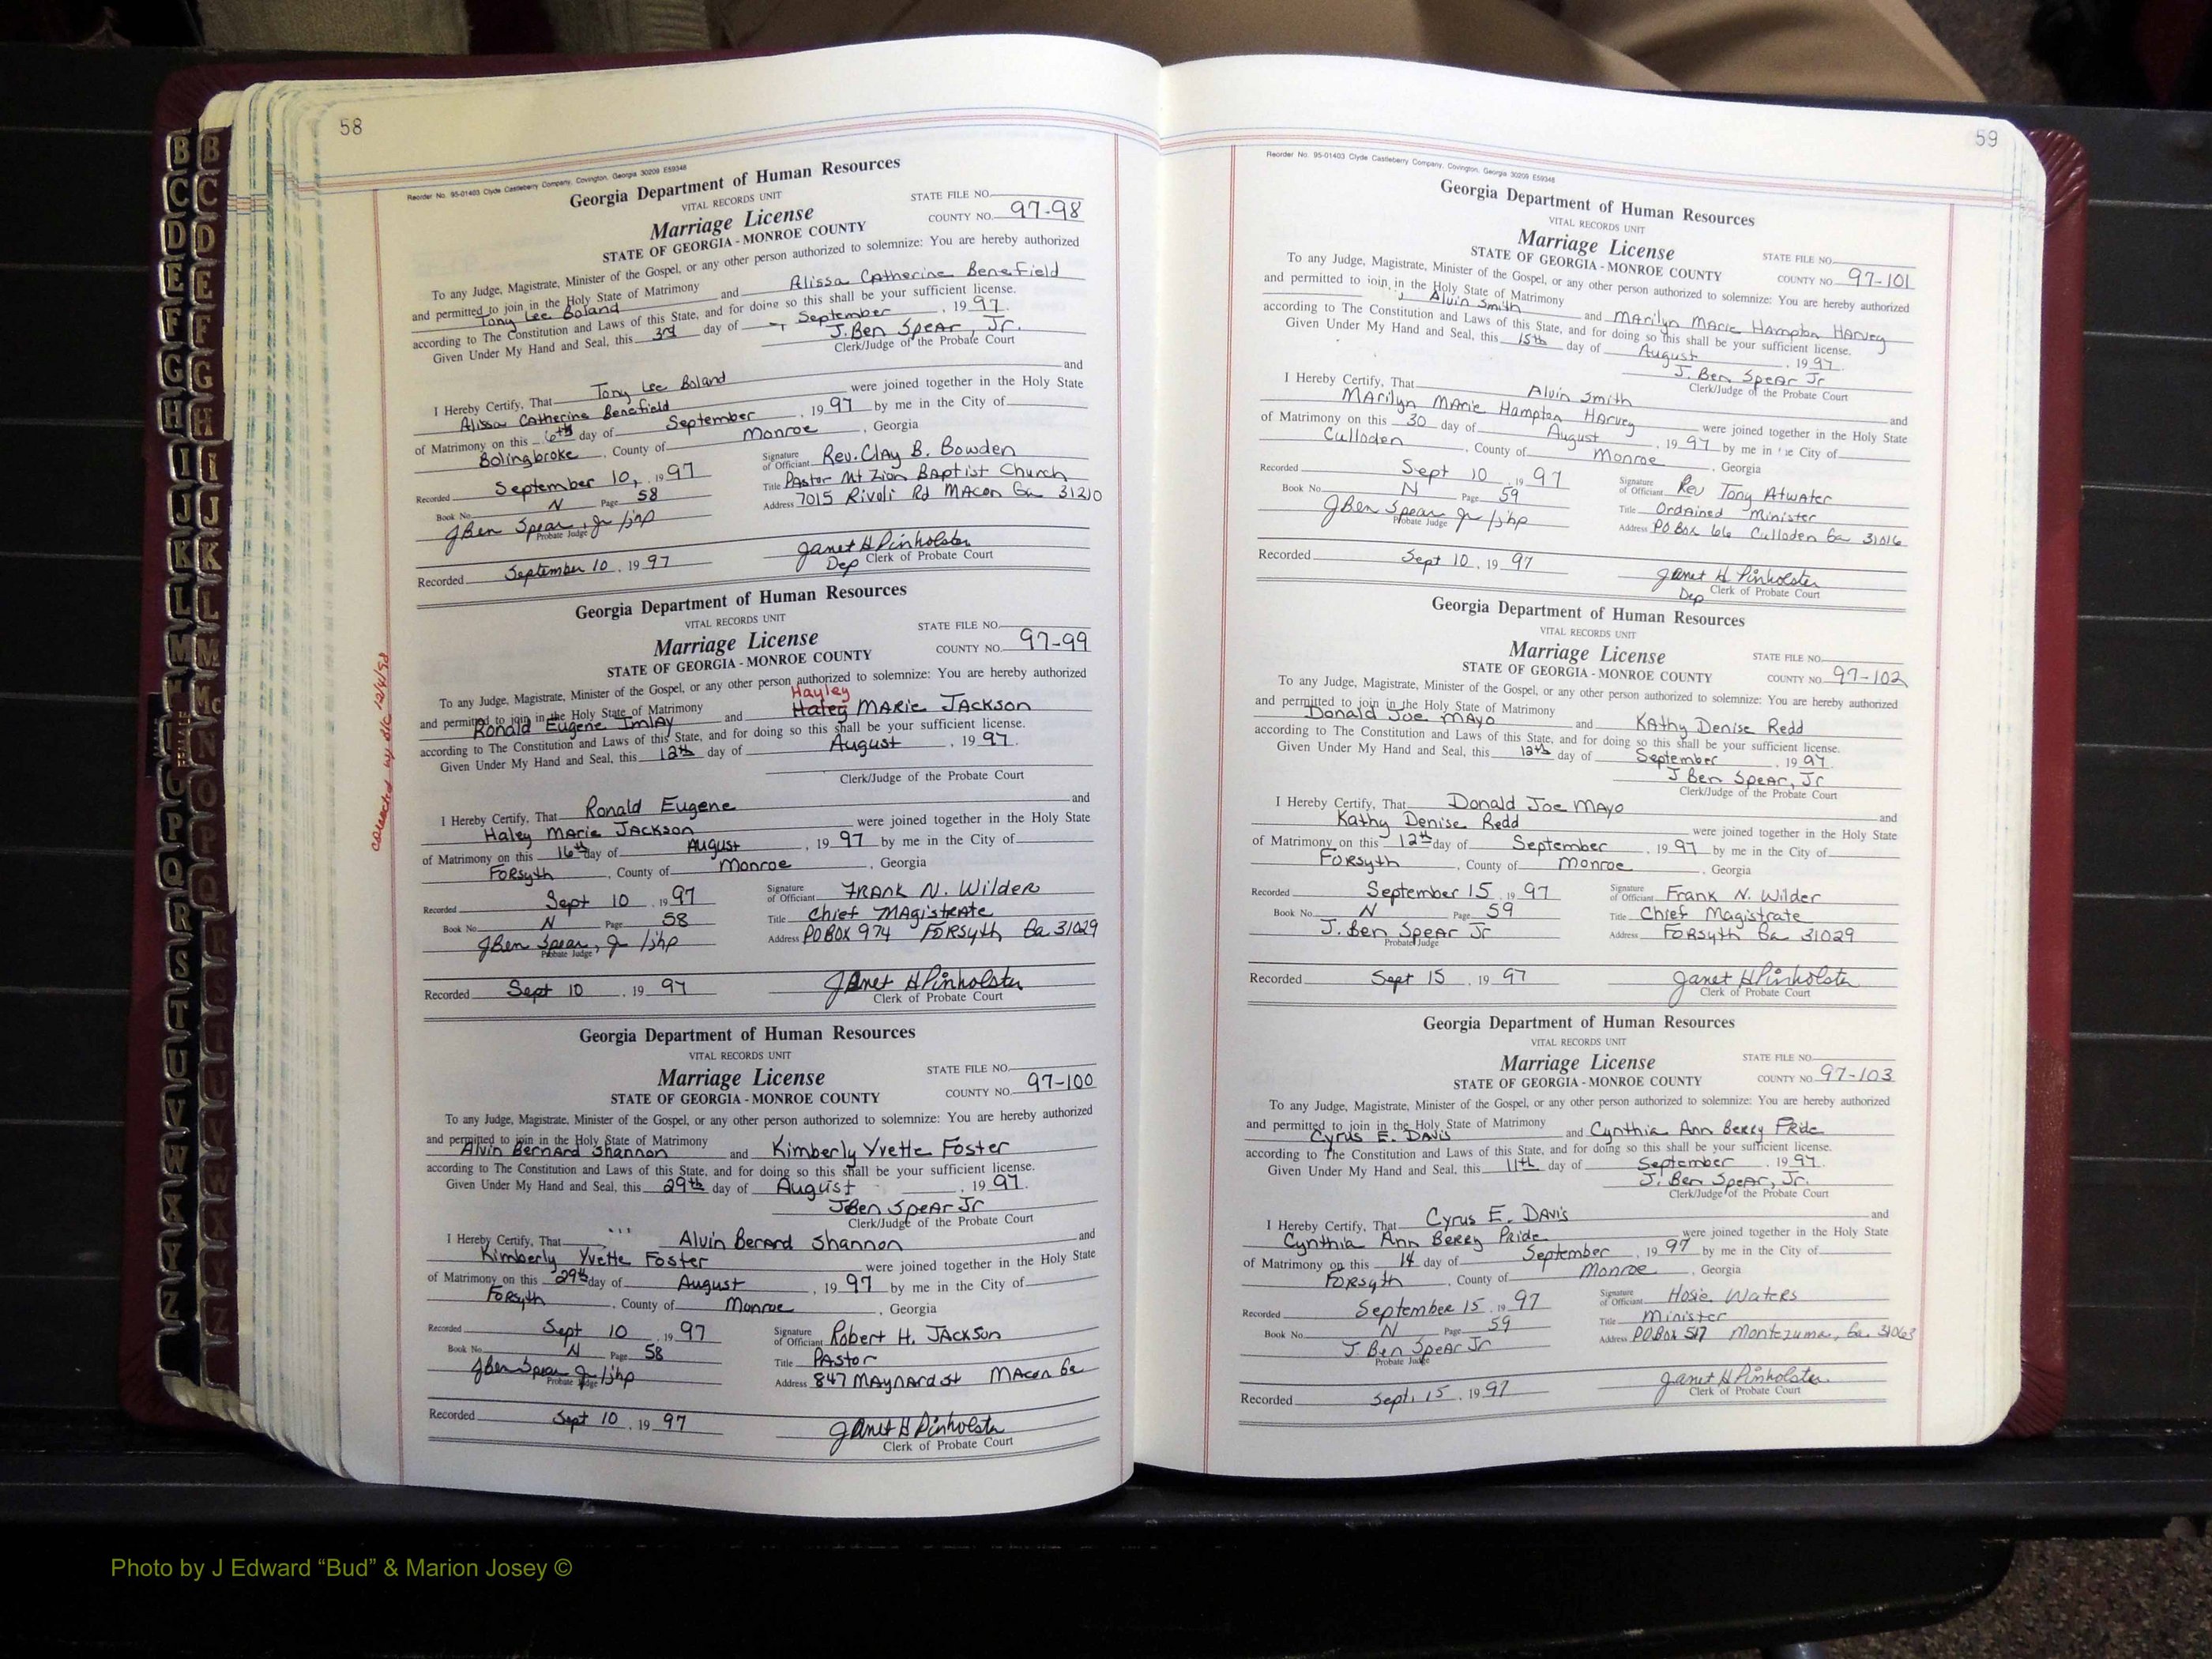 58
Reorder No. 95-01403 Clyde Castleberry Company, Covington, Georgia 30209 E59348
Georgia Department of Human Resources
VITAL RECORDS UNIT
STATE FILE NO.
Marriage License
COUNTY NO. 97-98
STATE OF GEORGIA - MONROE COUNTY
To any Judge, Magistrate, Minister of the Gospel, or any other person authorized to solemnize: You are hereby authorized
and permitted to join in the Holy State of Matrimony
Tony Lee Boland and Alissa Catherine Benefield
according to The Constitution and Laws of this State, and for doing so this shall be your sufficient license.
Given Under My Hand and Seal, this 3rd day of September, 1997.
J. Ben Spear, Jr.
Clerk/Judge of the Probate Court
I Hereby Certify, That Tony Lee Boland and
Alissa Catherine Benefield were joined together in the Holy State
of Matrimony on this 6th day of September, 1997 by me in the City of
Bolingbroke, County of Monroe, Georgia
Recorded September 10, 1997
Signature of Officiant Rev. Clay B. Bowden
Book No. N Page 58
Title Pastor Mt Zion Baptist Church
J Ben Spear, Jr /jhp
Probate Judge
Address 7015 Rivoli Rd Macon Ga 31210
Recorded September 10, 1997
Janet H Pinholster
Dep Clerk of Probate Court
Georgia Department of Human Resources
VITAL RECORDS UNIT
STATE FILE NO.
Marriage License
COUNTY NO. 97-99
STATE OF GEORGIA - MONROE COUNTY
To any Judge, Magistrate, Minister of the Gospel, or any other person authorized to solemnize: You are hereby authorized
Hayley
and permitted to join in the Holy State of Matrimony
Ronald Eugene Imlay and Haley Marie Jackson
according to The Constitution and Laws of this State, and for doing so this shall be your sufficient license.
Given Under My Hand and Seal, this 12th day of August, 1997.
Clerk/Judge of the Probate Court
I Hereby Certify, That Ronald Eugene and
Haley Marie Jackson were joined together in the Holy State
of Matrimony on this 16th day of August, 1997 by me in the City of
Forsyth, County of Monroe, Georgia
Recorded Sept 10, 1997
Signature of Officiant Frank N. Wilder
Book No. N Page 58
Title Chief Magistrate
J Ben Spear, Jr /jhp
Probate Judge
Address PO Box 974 Forsyth Ga 31029
Recorded Sept 10, 1997
Janet H Pinholster
Clerk of Probate Court
corrected 12/4/98
Georgia Department of Human Resources
VITAL RECORDS UNIT
STATE FILE NO.
Marriage License
COUNTY NO. 97-100
STATE OF GEORGIA - MONROE COUNTY
To any Judge, Magistrate, Minister of the Gospel, or any other person authorized to solemnize: You are hereby authorized
and permitted to join in the Holy State of Matrimony
Alvin Bernard Shannon and Kimberly Yvette Foster
according to The Constitution and Laws of this State, and for doing so this shall be your sufficient license.
Given Under My Hand and Seal, this 29th day of August, 1997.
J Ben Spear Jr
Clerk/Judge of the Probate Court
I Hereby Certify, That Alvin Berard Shannon and
Kimberly Yvette Foster were joined together in the Holy State
of Matrimony on this 29th day of August, 1997 by me in the City of
Forsyth, County of Monroe, Georgia
Recorded Sept 10, 1997
Signature of Officiant Robert H. Jackson
Book No. N Page 58
Title Pastor
J Ben Spear Jr /jhp
Probate Judge
Address 847 Maynard st Macon Ga
Recorded Sept 10, 1997
Janet H Pinholster
Clerk of Probate Court
59
Reorder No. 95-01403 Clyde Castleberry Company, Covington, Georgia 30209 E59348
Georgia Department of Human Resources
VITAL RECORDS UNIT
Marriage License
STATE FILE NO.
STATE OF GEORGIA - MONROE COUNTY
COUNTY NO. 97-101
To any Judge, Magistrate, Minister of the Gospel, or any other person authorized to solemnize: You are hereby authorized
and permitted to join in the Holy State of Matrimony
Alvin Smith and Marilyn Marie Hampton Harvey
according to The Constitution and Laws of this State, and for doing so this shall be your sufficient license.
Given Under My Hand and Seal, this 15th day of August, 1997.
J. Ben Spear Jr
Clerk/Judge of the Probate Court
I Hereby Certify, That Alvin Smith and
Marilyn Marie Hampton Harvey were joined together in the Holy State
of Matrimony on this 30 day of August, 1997 by me in the City of
Culloden, County of Monroe, Georgia
Recorded Sept 10 1997
Signature of Officiant Rev Tony Atwater
Book No. N Page 59
Title Ordained Minister
J Ben Spear Jr /jhp
Probate Judge
Address PO Box 66 Culloden Ga 31016
Recorded Sept 10, 1997
Janet H Pinholster
Dep Clerk of Probate Court
Georgia Department of Human Resources
VITAL RECORDS UNIT
Marriage License
STATE FILE NO.
STATE OF GEORGIA - MONROE COUNTY
COUNTY NO. 97-102
To any Judge, Magistrate, Minister of the Gospel, or any other person authorized to solemnize: You are hereby authorized
and permitted to join in the Holy State of Matrimony
Donald Joe Mayo and Kathy Denise Redd
according to The Constitution and Laws of this State, and for doing so this shall be your sufficient license.
Given Under My Hand and Seal, this 12th day of September, 1997.
J Ben Spear, Jr
Clerk/Judge of the Probate Court
I Hereby Certify, That Donald Joe Mayo and
Kathy Denise Redd were joined together in the Holy State
of Matrimony on this 12th day of September, 1997 by me in the City of
Forsyth, County of Monroe, Georgia
Recorded September 15, 1997
Signature of Officiant Frank N. Wilder
Book No. N Page 59
Title Chief Magistrate
J. Ben Spear Jr
Probate Judge
Address Forsyth Ga 31029
Recorded Sept 15, 1997
Janet H Pinholster
Clerk of Probate Court
Georgia Department of Human Resources
VITAL RECORDS UNIT
Marriage License
STATE FILE NO.
STATE OF GEORGIA - MONROE COUNTY
COUNTY NO. 97-103
To any Judge, Magistrate, Minister of the Gospel, or any other person authorized to solemnize: You are hereby authorized
and permitted to join in the Holy State of Matrimony
Cyrus E. Davis and Cynthia Ann Berry Pride
according to The Constitution and Laws of this State, and for doing so this shall be your sufficient license.
Given Under My Hand and Seal, this 11th day of September, 1997.
J. Ben Spear, Jr.
Clerk/Judge of the Probate Court
I Hereby Certify, That Cyrus E. Davis and
Cynthia Ann Berry Pride were joined together in the Holy State
of Matrimony on this 14 day of September, 1997 by me in the City of
Forsyth, County of Monroe, Georgia
Recorded September 15, 1997
Signature of Officiant Hosie Waters
Book No. N Page 59
Title Minister
J. Ben Spear Jr
Probate Judge
Address PO Box 517 Montezuma, Ga. 31063
Recorded Sept. 15, 1997
Janet H Pinholster
Clerk of Probate Court
B B
C C
D D
E E
F F
G G
H H
I I
J J
K K
L L
M M
Mc
N
O
P P
Q Q
R R
S S
T T
U U
V V
W W
X X
Y Y
Z Z
Photo by J Edward “Bud” & Marion Josey ©